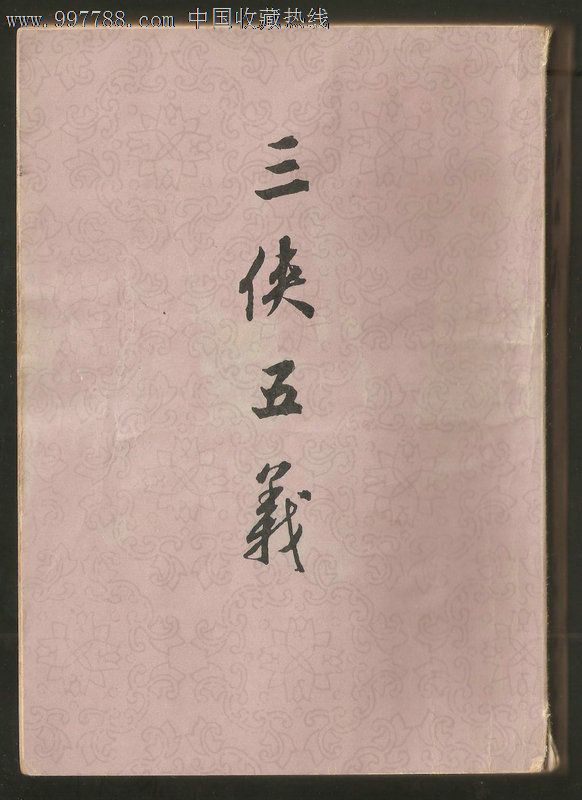 www.997788.com 中国收藏热线
三侠五義